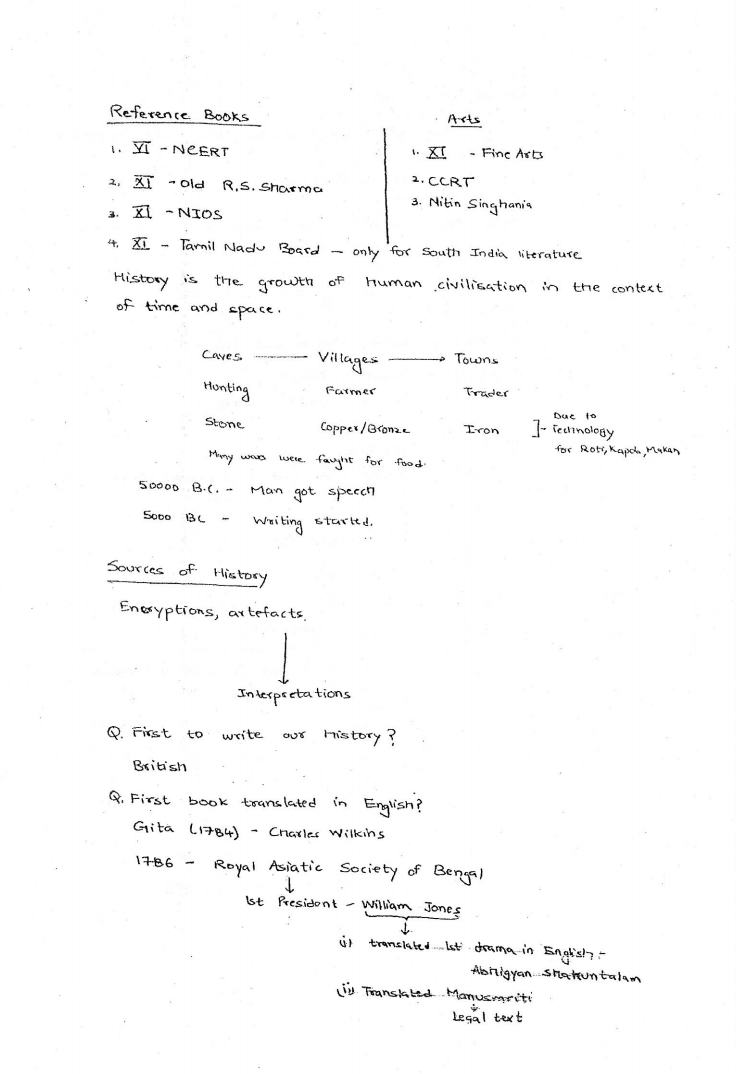 Reference Books
1. VI - NCERT
2. XI - Old R.S. Sharma
3. XI - NIOS
4. XI - Tamil Nadu Board - only for South India literature
Arts
1. XI - Fine Arts
2. CCRT
3. Nitin Singhania
History is the growth of human civilisation in the context
of time and space.
Caves Villages Towns
Hunting Farmer Trader
Stone Copper/Bronze Iron
Due to
Technology
for Roti, Kapda, Makan
Many wars were faught for food.
50000 B.C. - Man got speech
5000 BC - Writing started.
Sources of History
Encryptions, artefacts.
Interpretations
Q. First to write our History?
British
Q. First book translated in English?
Gita (1784) - Charles Wilkins
1786 - Royal Asiatic Society of Bengal
1st President - William Jones
(i) translated 1st drama in English :-
Abhigyan Shakuntalam
(ii) Translated Manusmriti
Legal text